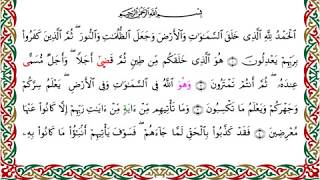 بِسْمِ اللَّهِ الرَّحْمَٰنِ الرَّحِيمِ
الْحَمْدُ لِلَّهِ الَّذِي خَلَقَ السَّمَٰوَٰتِ وَالْأَرْضَ وَجَعَلَ الظُّلُمَٰتِ وَالنُّورَ ۖ ثُمَّ الَّذِينَ كَفَرُوا
بِرَبِّهِمْ يَعْدِلُونَ ۝ هُوَ الَّذِي خَلَقَكُم مِّن طِينٍ ثُمَّ قَضَىٰ أَجَلًا ۖ وَأَجَلٌ مُّسَمًّى
عِندَهُ ۖ ثُمَّ أَنتُمْ تَمْتَرُونَ ۝ وَهُوَ اللَّهُ فِي السَّمَٰوَٰتِ وَفِي الْأَرْضِ ۖ يَعْلَمُ سِرَّكُمْ
وَجَهْرَكُمْ وَيَعْلَمُ مَا تَكْسِبُونَ ۝ وَمَا تَأْتِيهِم مِّنْ ءَايَةٍ مِّنْ ءَايَٰتِ رَبِّهِمْ إِلَّا كَانُوا عَنْهَا
مُعْرِضِينَ ۝ فَقَدْ كَذَّبُوا بِالْحَقِّ لَمَّا جَاءَهُمْ ۖ فَسَوْفَ يَأْتِيهِمْ أَنبَٰٓؤُا مَا كَانُوا بِهِ